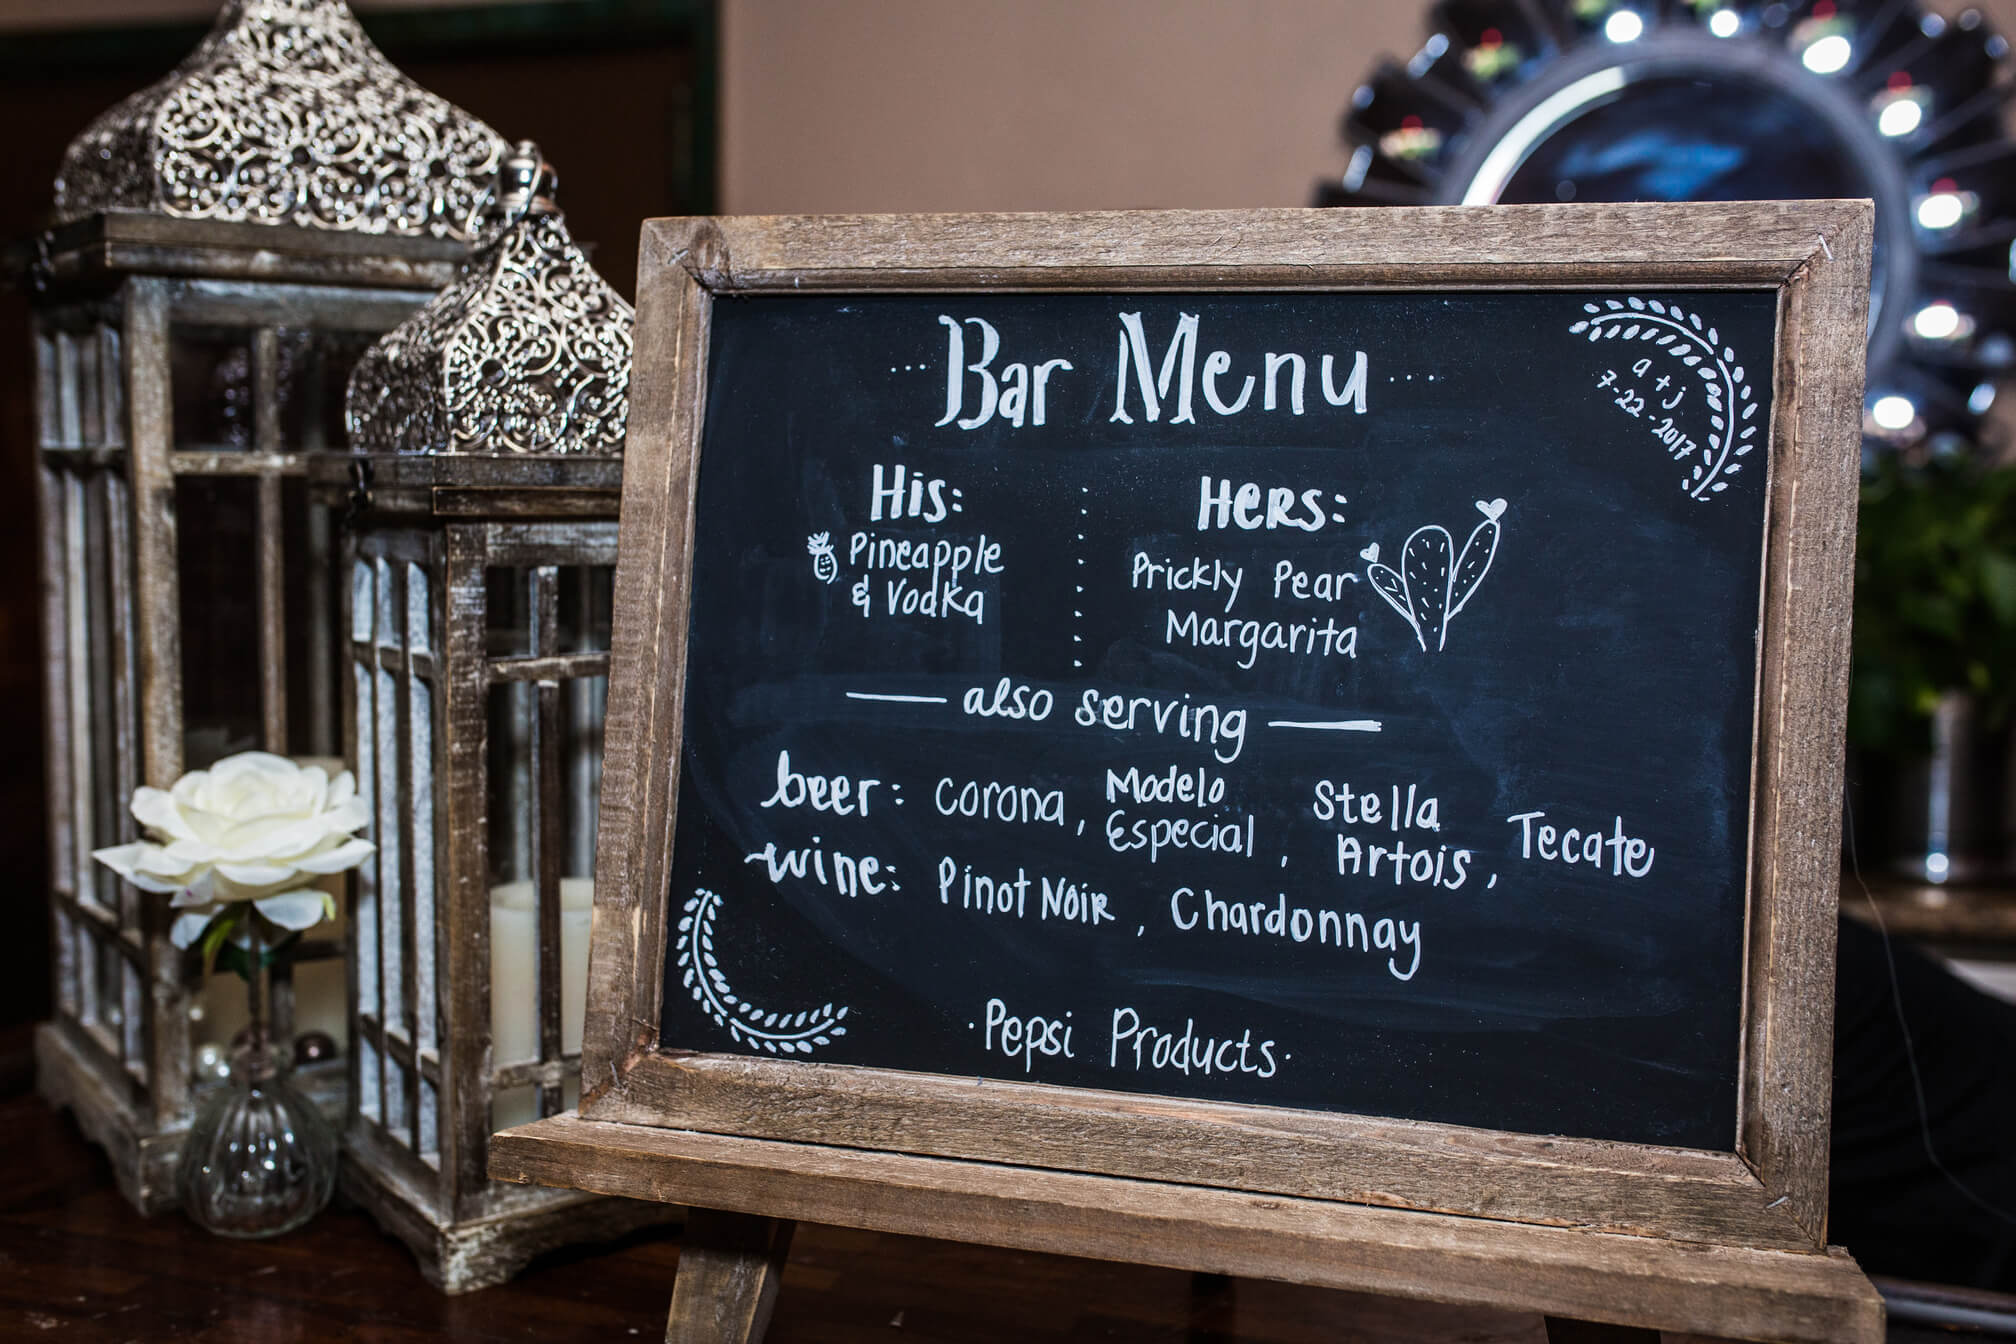 Bar Menu
a + j
7-22-2017
His:
Pineapple
& Vodka
HeRS:
Prickly Pear
Margarita
also serving
beer: corona, Modelo Especial, Stella Artois, Tecate
wine: Pinot Noir, Chardonnay
·Pepsi Products·